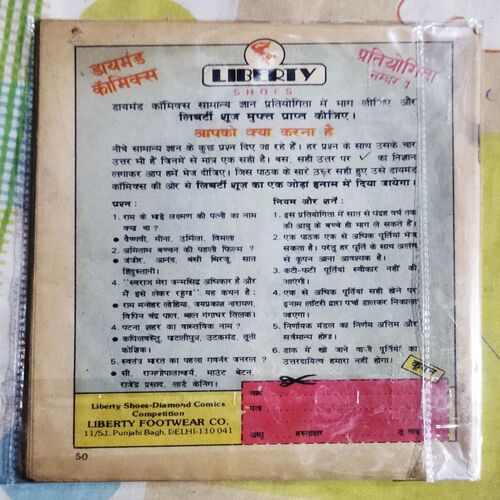 डायमंड
कॉमिक्स
LIBERTY
SHOES
प्रतियोगिता
नम्बर 1
डायमंड कॉमिक्स सामान्य ज्ञान प्रतियोगिता में भाग लीजिए और
लिबर्टी शूज मुफ्त प्राप्त कीजिए।
आपको क्या करना है
नीचे सामान्य ज्ञान के कुछ प्रश्न दिए जा रहे हैं। हर प्रश्न के साथ उसके चार
उत्तर भी हैं जिनमें से मात्र एक सही है। बस, सही उत्तर पर ✓ का निशान
लगाकर आप हमें भेज दीजिए। जिस पाठक के सारे उत्तर सही हुए उसे डायमंड
कॉमिक्स की ओर से लिबर्टी शूज का एक जोड़ा इनाम में दिया जायेगा।
प्रश्न :
1. राम के भाई लक्ष्मण की पत्नी का नाम
क्या था ?
● वैष्णवी, मीना, उर्मिला, विमला
2. अमिताभ बच्चन की पहली फिल्म ?
● जंजीर, आनंद, बंसी बिरजू, सात
हिंदुस्तानी।
4. "स्वराज मेरा जन्मसिद्ध अधिकार है और
मैं इसे लेकर रहूंगा" यह कथन है :
● राम मनोहर लोहिया, जयप्रकाश नारायण,
विपिन चन्द्र पाल, बाल गंगाधर तिलक।
4. पटना शहर का वास्तविक नाम ?
● कपिलवस्तु, पाटलीपुत्र, उटकमंड, तूती
कोरिन।
5. स्वतंत्र भारत का पहला गवर्नर जनरल ?
● सी. राजगोपालाचार्य, माउंट बेटन,
राजेन्द्र प्रसाद, लार्ड केनिंग।
नियम और शर्तें :
1. इस प्रतियोगिता में सात से पंद्रह वर्ष तक
की आयु के बच्चे ही भाग ले सकते हैं।
2. एक पाठक एक से अधिक पूर्तियां भेज
सकता है। परन्तु हर पूर्ति के साथ अलग
से कूपन आना आवश्यक है।
3. कटी-फटी पूर्तियां स्वीकार नहीं की
जाएंगी।
4. एक से अधिक पूर्तियां सही होने पर
इनाम लॉटरी द्वारा पर्चा डालकर निकाला
जाएगा।
5. निर्णायक मंडल का निर्णय अंतिम और
सर्वमान्य होगा।
6. डाक में खो जाने वाली पूर्तियां का
उत्तरदायित्व हमारा नहीं होगा।
कूपन
Liberty Shoes-Diamond Comics
Competition
LIBERTY FOOTWEAR CO.
11/51, Punjabi Bagh, DELHI-110 041
नाम
पता
आयु हस्ताक्षर
50